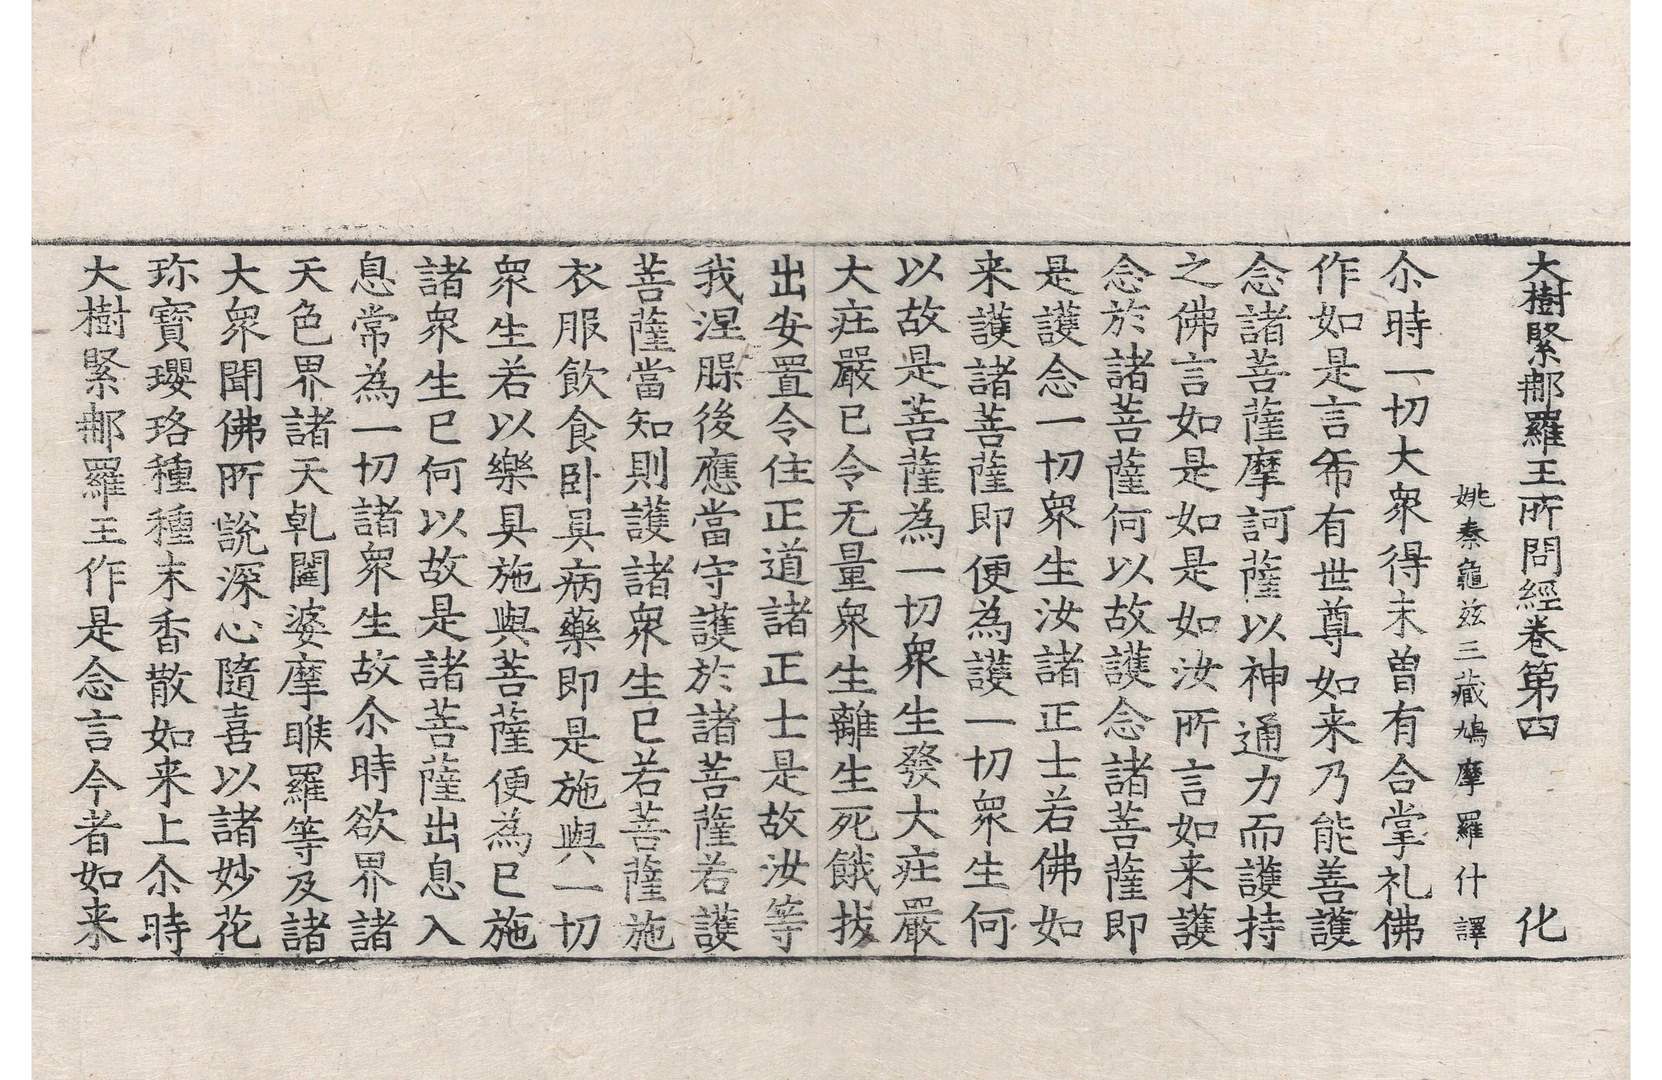 大樹緊那羅王所問經卷第四　化
姚秦龜兹三藏鳩摩羅什譯
尒時一切大衆得未曾有合掌礼佛
作如是言希有世尊如来乃能善護
念諸菩薩摩訶薩以神通力而護持
之佛言如是如是如汝所言如来護
念於諸菩薩何以故護念諸菩薩即
是護念一切衆生汝諸正士若佛如
来護諸菩薩即便為護一切衆生何
以故是菩薩為一切衆生發大庄嚴
大庄嚴已令无量衆生離生死餓拔
出安置令住正道諸正士是故汝等
我涅槃後應當守護於諸菩薩若護
菩薩當知則護諸衆生已若菩薩施
衣服飲食卧具病藥即是施與一切
衆生若以樂具施與菩薩便為已施
諸衆生已何以故是諸菩薩出息入
息常為一切諸衆生故尒時欲界諸
天色界諸天乹闥婆摩睺羅等及諸
大衆聞佛所說深心隨喜以諸妙花
珎寶瓔珞種種末香散如来上尒時
大樹緊那羅王作是念言今者如来